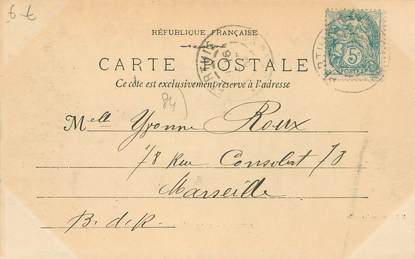 6-6
RÉPUBLIQUE FRANÇAISE
CARTE POSTALE
Ce côté est exclusivement réservé à l'adresse
84
Melle Yvonne Roux
78 Rue Consolat 78
Marseille
B. d. R.
5